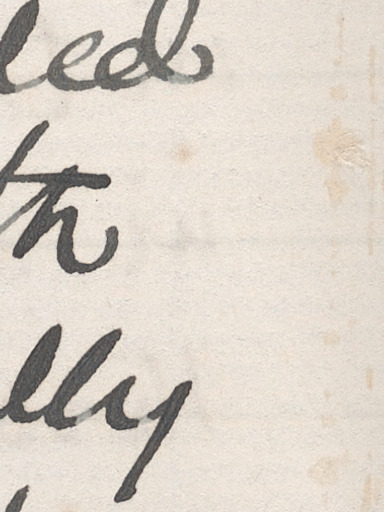 led
th
lly